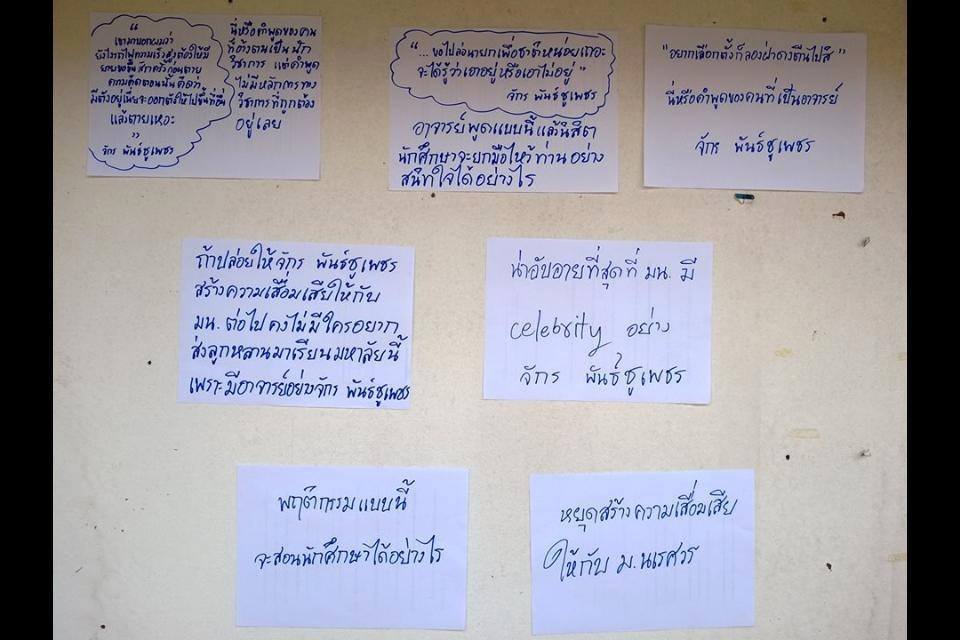 “
เขามาบอกผมว่า
ยังไงรถไฟความเร็วสูงต้องให้มี
ยายขอขึ้นสักครั้งก่อนตาย
ความคิดตอนนั้นคือว่า
มีตังอยู่เพียจะออกตังให้ไปขึ้นที่อื่น
แล้วตายเหอะ
”
จักร พันธ์ชูเพชร
นี่หรือคำพูดของคน
ที่อ้างตนเป็น นัก
วิชาการ แต่คำพูด
ไม่มีหลักการทาง
วิชาการที่ถูกต้อง
อยู่เลย
“... ขอไปล่อนายกเพื่อชาติหน่อยเถอะ
จะได้รู้ว่าเอาอยู่หรือเอาไม่อยู่ ”
จักร พันธ์ชูเพชร
อาจารย์พูดแบบนี้ แล้วนิสิต
นักศึกษาจะยกมือไหว้ท่าน อย่าง
สนิทใจได้อย่างไร
“อยากเลือกตั้งก็ลองฝ่าดงตีนไปสิ”
นี่หรือคำพูดของคนที่เป็นอาจารย์
จักร พันธ์ชูเพชร
ถ้าปล่อยให้จักร พันธ์ชูเพชร
สร้างความเสื่อมเสียให้กับ
มน. ต่อไป คงไม่มีใครอยาก
ส่งลูกหลานมาเรียนมหาลัยนี้
เพราะมีอาจารย์อย่างจักร พันธ์ชูเพชร
น่าอับอายที่สุดที่ มน. มี
celebrity อย่าง
จักร พันธ์ชูเพชร
พฤติกรรมแบบนี้
จะสอนนักศึกษาได้อย่างไร
หยุดสร้างความเสื่อมเสีย
ให้กับ ม.นเรศวร